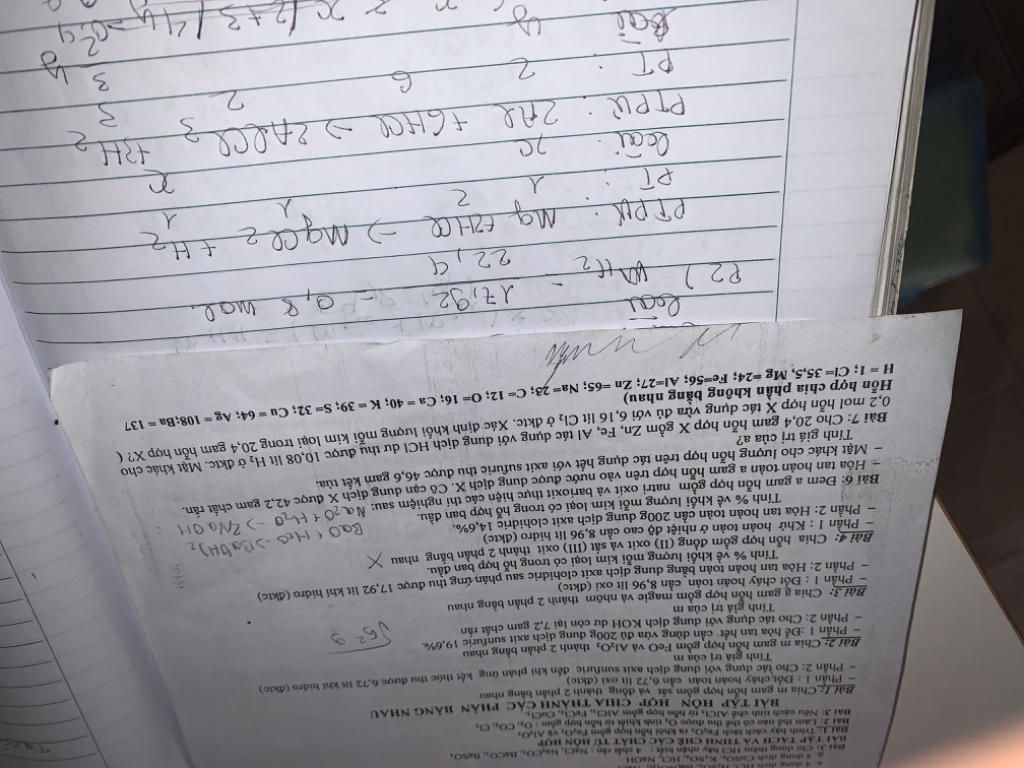 g. 4 dung dịch CuSO₄, K₂SO₄, HCl, NaOH
Bài 3: Chỉ dùng thêm HCl hãy nhận biết : 4 chất rắn : NaCl, Na₂CO₃, BaCO₃, BaSO₄
BÀI TẬP TÁCH VÀ TINH CHẾ CÁC CHẤT TỪ HỖN HỢP
Bài 1: Trình bày cách tách Fe₂O₃ ra khỏi hỗn hợp gồm Fe₂O₃ và Al₂O₃
Bài 2: Làm thế nào có thể thu được O₂ tinh khiết từ hỗn hợp gồm : O₂, CO₂, Cl₂
Bài 3: Nêu cách tinh chế AlCl₃ từ hỗn hợp gồm AlCl₃, FeCl₃, CuCl₂
BÀI TẬP HỖN HỢP CHIA THÀNH CÁC PHẦN BẰNG NHAU
Bài 1: Chia m gam hỗn hợp gồm sắt và đồng thành 2 phần bằng nhau
– Phần 1 : Đốt cháy hoàn toàn cần 6,72 lít oxi (đktc)
– Phần 2: Cho tác dụng với dung dịch axit sunfuric đến khi phản ứng kết thúc thu được 6,72 lít hidro khí (đktc)
Tính giá trị của m
Bài 2: Chia m gam hỗn hợp gồm FeO và Al₂O₃ thành 2 phần bằng nhau
– Phần 1 :Để hòa tan hết cần dùng vừa đủ 200g dung dịch axit sunfuric 19,6%.
– Phần 2: Cho tác dụng với dung dịch KOH dư còn lại 7,2 gam chất rắn
Tính giá trị của m
Bài 3: Chia a gam hỗn hợp gồm magie và nhôm thành 2 phần bằng nhau
– Phần 1 : Đốt cháy hoàn toàn cần 8,96 lít oxi (đktc)
– Phần 2: Hòa tan hoàn toàn bằng dung dịch axit clohidric sau phản ứng thu được 17,92 lít khí hidro (đktc)
Tính % về khối lượng mỗi kim loại có trong hỗ hợp ban đầu.
Bài 4: Chia hỗn hợp gồm đồng (II) oxit và sắt (III) oxit thành 2 phần bằng nhau X
– Phần 1 : Khử hoàn toàn ở nhiệt độ cao cần 8,96 lít hidro (đktc)
– Phần 2 : Hòa tan hoàn toàn cần 200g dung dịch axit clohidric 14,6%.
Tính % về khối lượng mỗi kim loại có trong hỗ hợp ban đầu.
BaO + H₂O → Ba(OH)₂
Na₂O + H₂O → 2NaOH
Bài 6: Đem a gam hỗn hợp gồm natri oxit và barioxit thực hiện các thí nghiệm sau:
– Hòa tan hoàn toàn a gam hỗn hợp trên vào nước được dung dịch X. Cô cạn dung dịch X được 42,2 gam chất rắn.
– Mặt khác cho lượng hỗn hợp trên tác dụng hết với axit sufuric thu được 46,6 gam kết tủa.
Tính giá trị của a?
Bài 7: Cho 20,4 gam hỗn hợp X gồm Zn, Fe, Al tác dụng với dung dịch HCl dư thu được 10,08 lít H₂ ở đktc. Mặt khác cho
0,2 mol hỗn hợp X tác dụng vừa đủ với 6,16 lít Cl₂ ở đktc. Xác định khối lượng mỗi kim loại trong 20,4 gam hỗn hợp X? (
Hỗn hợp chia phần không bằng nhau)
H = 1; Cl= 35,5, Mg =24; Fe=56; Al=27; Zn =65; Na= 23; C= 12; O= 16; Ca = 40; K = 39; S= 32; Cu = 64; Ag = 108;Ba = 137
P2) nH₂ = 17,92 / 22,4 = 0,8 mol.
PTPƯ: Mg + 2HCl → MgCl₂ + H₂
PT : 1 2 1 1
x x
PTPƯ : 2Al + 6HCl → 2AlCl₃ + 3H₂
PT : 2 6 2 3